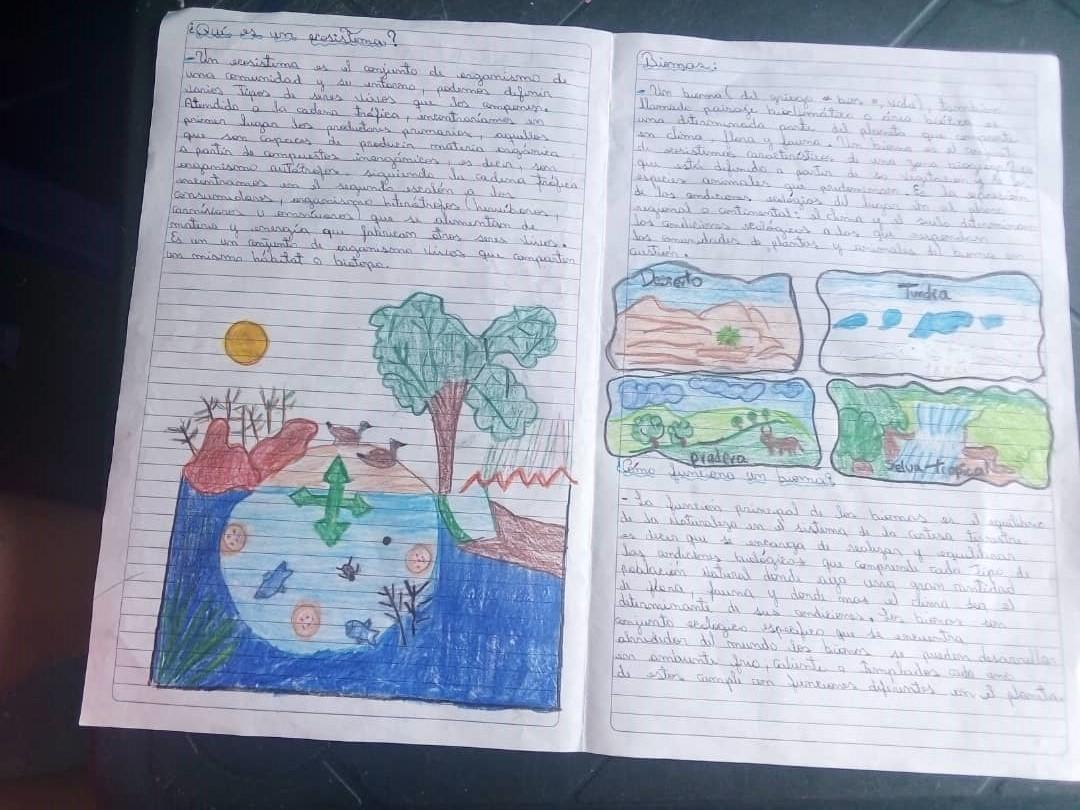 ¿Qué es un ecosistema?
- Un ecosistema es el conjunto de organismo de
una comunidad y su entorno, podemos definir
varios tipos de seres vivos que los componen.
Atendido a la cadena trófica, encontraríamos en
primer lugar los productores primarios, aquellos
que son capaces de producir materia orgánica
a partir de compuestos inorgánicos, es decir, son
organismo autótrofos. siguiendo la cadena trófica
encontramos en el segundo escalón a los
consumidores, organismo heterótrofos (herviboros,
carnívoros u omnívoros) que se alimentan de
materia y energía que fabrican otros seres vivos.
Es un un conjunto de organismo vivos que comparten
un mismo hábitat o biotopo.
Biomas:
- Un bioma (del griego « bios », vida), también
llamado paisaje bioclimático o área biótica es
una determinada parte del planeta que comparte
en clima, flora y fauna. Un bioma es el conjunto
de ecosistemas característicos de una zona
que está definido a partir de su vegetación y de las
especies animales que predominan. Es la expresión
de las condiciones ecológicas del lugar en el plano
regional o continental: el clima y el suelo determinan
las condiciones ecológicas a los que responden
las comunidades de plantas y animales del bioma en
cuestión.
Desierto
Tundra
pradera
Selva-tropical
¿Cómo funciona un bioma?
- La funcion principal de los biomas es el equilibrio
de la Naturaleza en el sistema de la corteza terrestre
es decir que se encarga de realizar y equilibrar
las condiciones biológicas que comprende cada Tipo de
población Natural donde aya una gran cantidad
de flora, fauna y donde mas el clima sea el
determinante de sus condiciones. los biomas son
conjunto ecologico especifico que se encuentra
alrededor del mundo los biomas se pueden desarrollar
en ambiente frio, caliente o templados cada uno
de estos cumple con funciones diferentes en el planeta